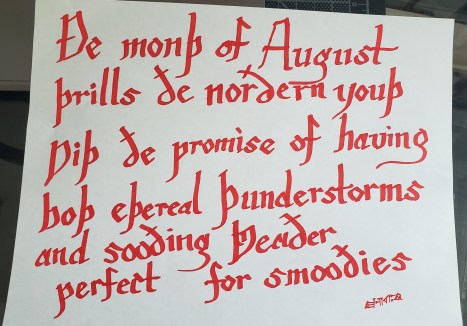 Ðe monþ of August
þrills ðe norðern youþ
ƿiþ ðe promise of having
boþ eþereal þunderstorms
and sooðing ƿeaðer
perfect for smooðies